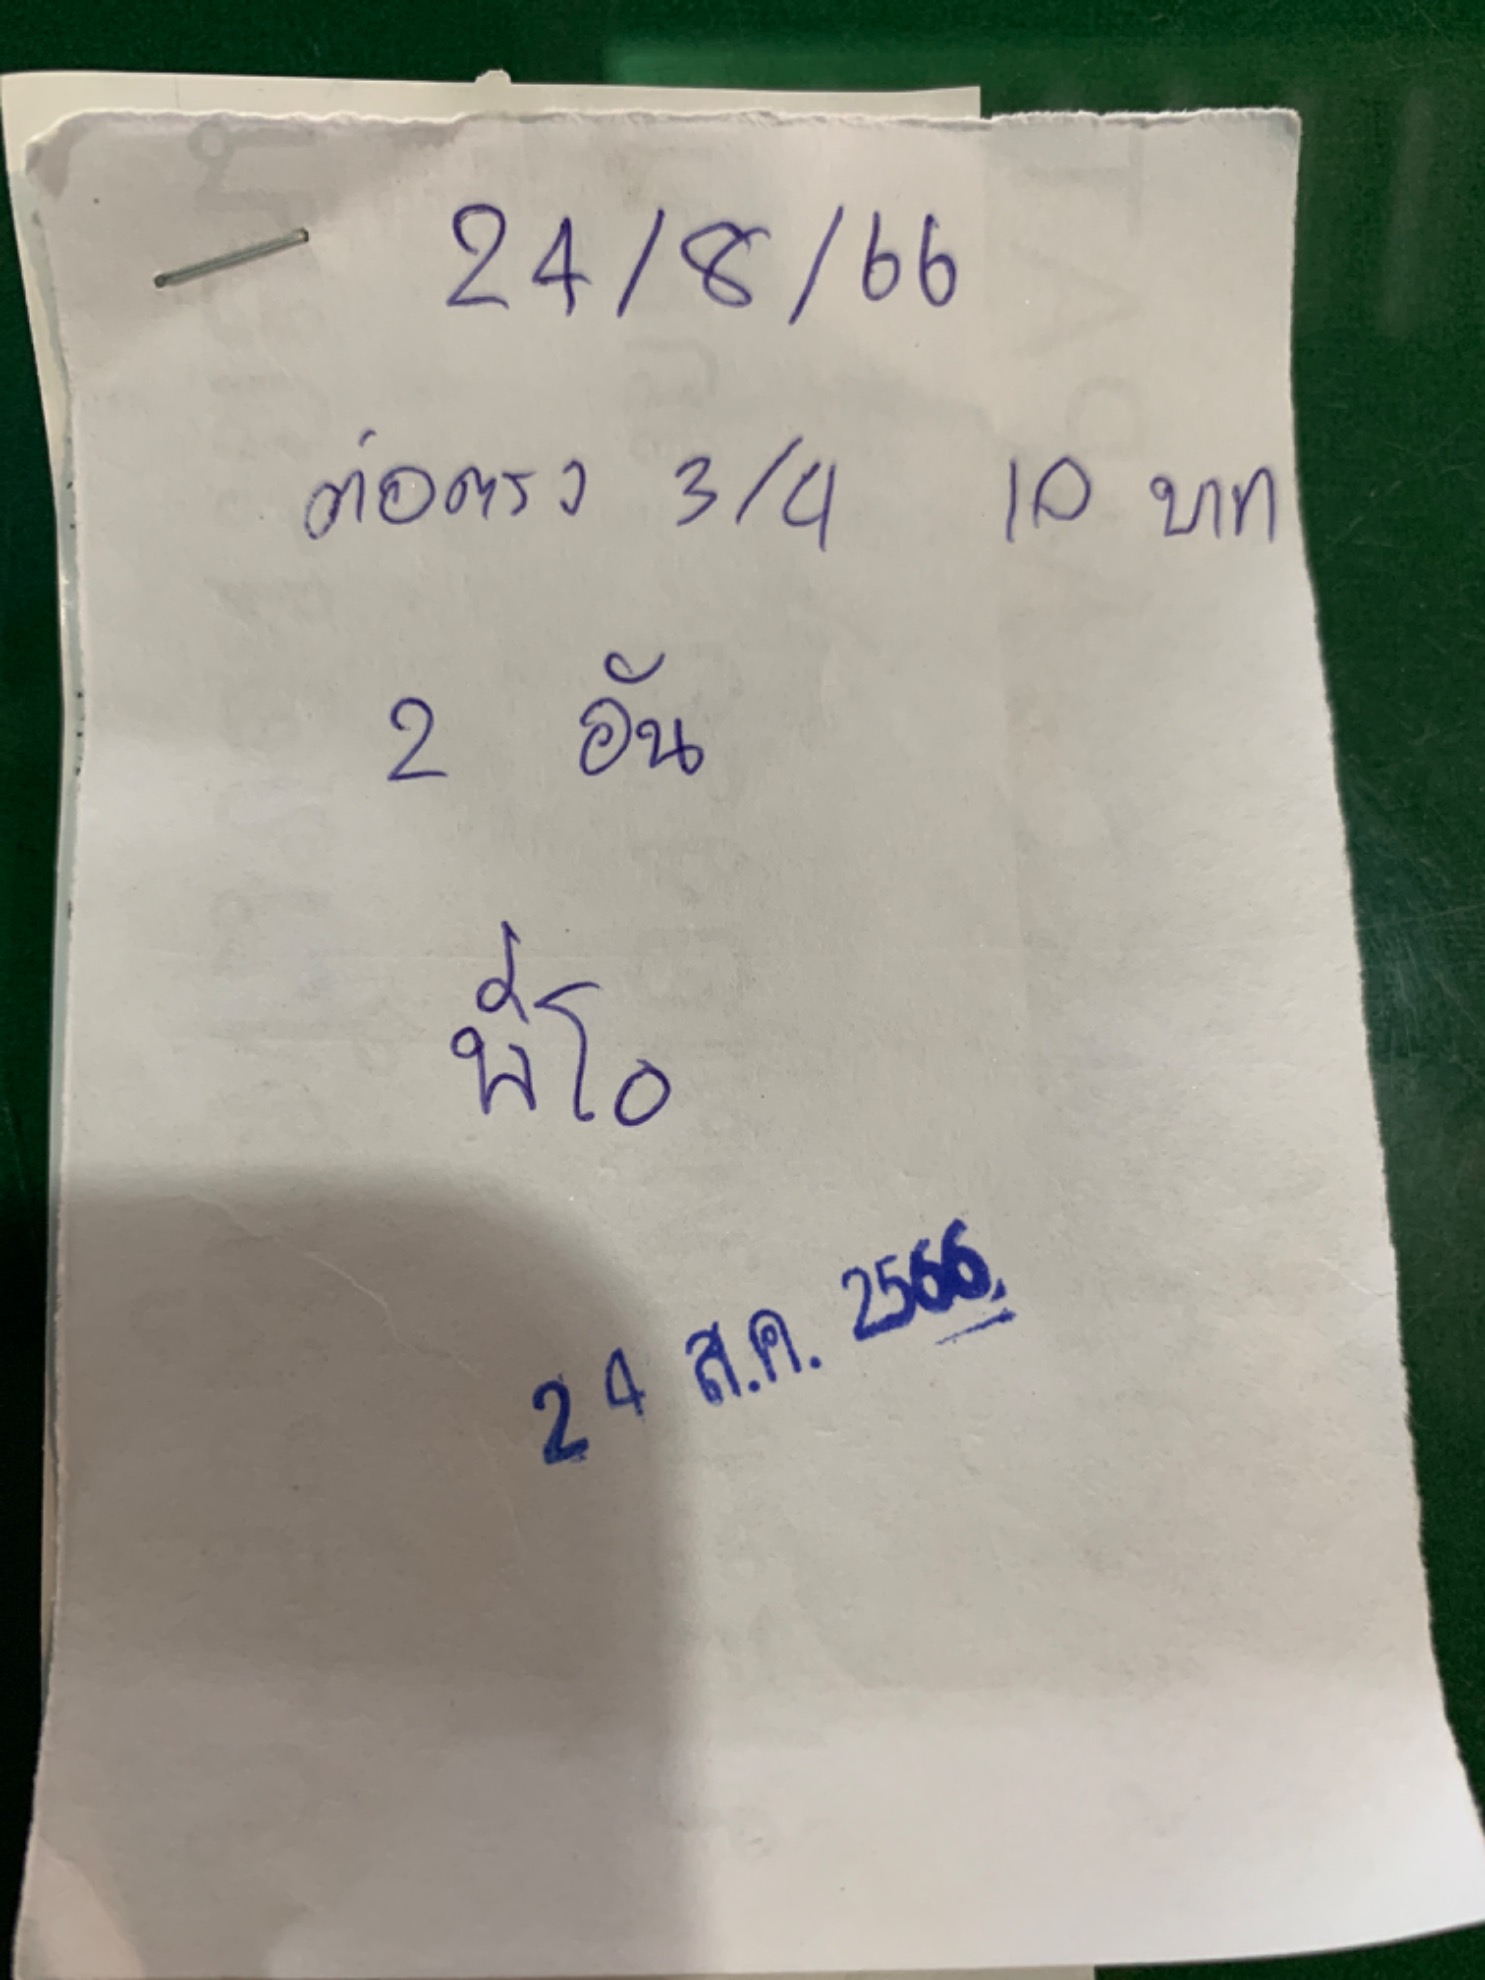 24/8/66
ต่อตรง 3/4 10 บาท
2 อัน
พี่โอ
24 ส.ค. 2566